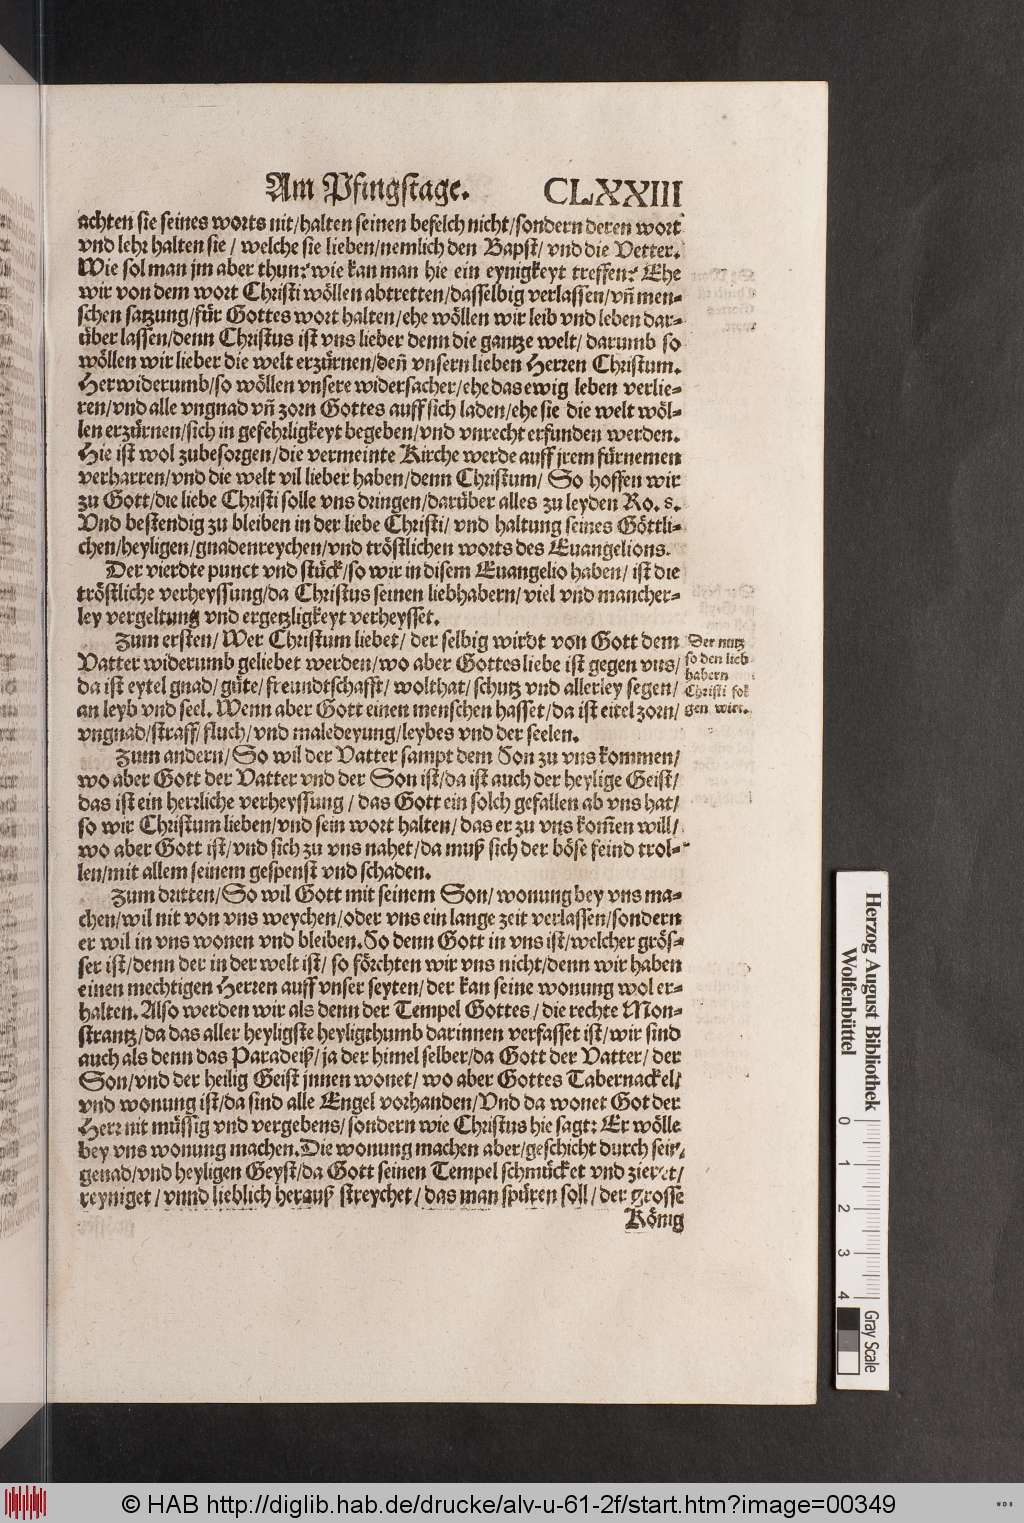 Am Pfingstage. CLXXIII
achten sie seines worts nit/halten seinen befelch nicht/sondern deren wort
vnd lehr halten sie/ welche sie lieben/nemlich den Bapst/ vnd die Vetter.
Wie sol man jm aber thun? wie kan man hie ein eynigkeyt treffen? Ehe
wir von dem wort Christi wöllen abtretten/dasselbig verlassen/vñ men-
schen satzung/für Gottes wort halten/ehe wöllen wir leib vnd leben dar-
über lassen/denn Christus ist vns lieber denn die gantze welt/ darumb so
wöllen wir lieber die welt erzürnen/deñ vnsern lieben Herren Christum.
Herwiderumb/so wöllen vnsere widersacher/ehe das ewig leben verlie-
ren/vnd alle vngnad vñ zorn Gottes auff sich laden/ehe sie die welt wöl-
len erzürnen/sich in gefehrligkeyt begeben/vnd vnrecht erfunden werden.
Hie ist wol zubesorgen/die vermeinte Kirche werde auff jrem fürnemen
verharren/vnd die welt vil lieber haben/denn Christum/ So hoffen wir
zu Gott/die liebe Christi solle vns dringen/darüber alles zu leyden Ro. 8.
Vnd bestendig zu bleiben in der liebe Christi/ vnd haltung seines Göttli-
chen/heyligen/gnadenreychen/vnd tröstlichen worts des Euangelions.
Der vierdte punct vnd stück/so wir in disem Euangelio haben/ ist die
tröstliche verheyssung/da Christus seinen liebhabern/ viel vnd mancher-
ley vergeltung vnd ergetzligkeyt verheysset.
Zum ersten/ Wer Christum liebet/ der selbig wirdt von Gott dem
Vatter widerumb geliebet werden/wo aber Gottes liebe ist gegen vns/
da ist eytel gnad/ güte/ freundtschafft/ wolthat/ schutz vnd allerley segen/
an leyb vnd seel. Wenn aber Gott einen menschen hasset/da ist eitel zorn/
vngnad/straff/ fluch/ vnd maledeyung/leybes vnd der seelen.
Der nutz
so den lieb
habern
Christi fol
gen wirt.
Zum andern/ So wil der Vatter sampt dem Son zu vns kommen/
wo aber Gott der Vatter vnd der Son ist/da ist auch der heylige Geist/
das ist ein herzliche verheyssung/ das Gott ein solch gefallen ab vns hat/
so wir Christum lieben/vnd sein wort halten/ das er zu vns kom̃en will/
wo aber Gott ist/vnd sich zu vns nahet/da muß sich der böse feind trol-
len/mit allem seinem gespenst vnd schaden.
Zum dritten/ So wil Gott mit seinem Son/ wonung bey vns ma-
chen/wil nit von vns weychen/oder vns ein lange zeit verlassen/sondern
er wil in vns wonen vnd bleiben. So denn Gott in vns ist/welcher grös-
ser ist/denn der in der welt ist/ so förchten wir vns nicht/denn wir haben
einen mechtigen Herren auff vnser seyten/der kan seine wonung wol er-
halten. Also werden wir als denn der Tempel Gottes/ die rechte Mon-
strantz/da das aller heyligste heyligthumb darinnen verfasset ist/wir sind
auch als denn das Paradeiß/ ja der himel selber/da Gott der Vatter/ der
Son/vnd der heilig Geist jnnen wonet/ wo aber Gottes Tabernackel/
vnd wonung ist/da sind alle Engel vorhanden/Vnd da wonet Got der
Herr nit müssig vnd vergebens/ sondern wie Christus hie sagt: Er wölle
bey vns wonung machen. Die wonung machen aber/geschicht durch sein
genad/vnd heyligen Geyst/da Gott seinen Tempel schmücket vnd zieret/
reyniget/ vnnd lieblich herauß streychet/ das man spüren soll/ der grosse
König
Herzog August Bibliothek
Wolfenbüttel
0 1 2 3 4
Gray Scale
© HAB http://diglib.hab.de/drucke/alv-u-61-2f/start.htm?image=00349